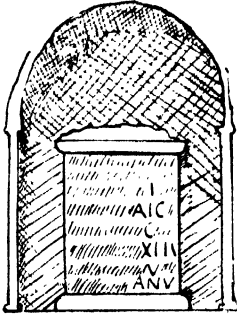 I
AIC
C
XIII
N
ANV